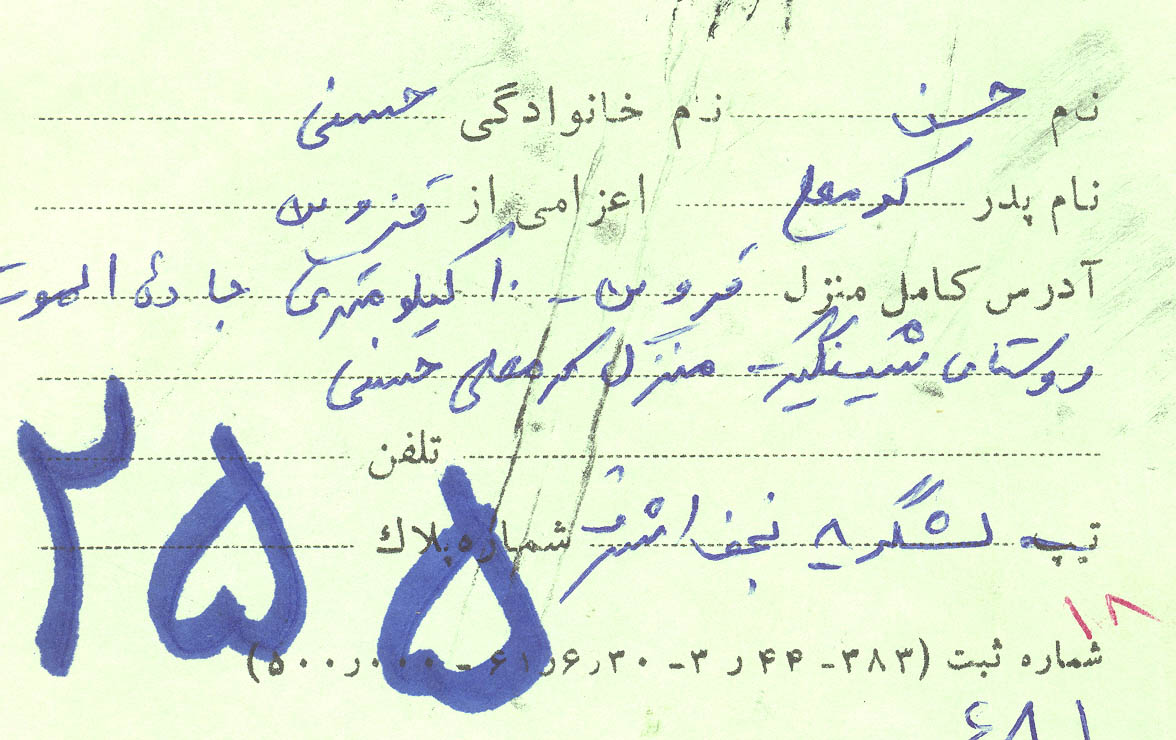 نام حسن نام خانوادگی حسنی
نام پدر کرمعلی اعزامی از قزوین
آدرس کامل منزل قزوین - ۱۰ کیلومتری جادهٔ الموت
روستای شینگیر - منزل کرمعلی حسنی
تلفن
تیپ لشگر ۸ نجف اشرف شماره پلاک
۲۵۵
۱۸
شماره ثبت (۳۸۳ - ۴۴ ر ۳ - ۶٫۳۰ر۶۱ - ۵۰۰٫۰۰۰)
۶۸۱